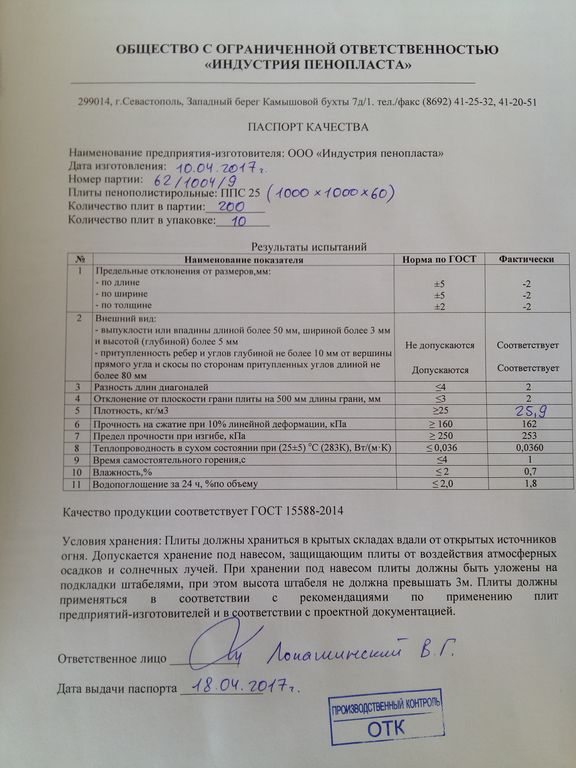 ОБЩЕСТВО С ОГРАНИЧЕННОЙ ОТВЕТСТВЕННОСТЬЮ
«ИНДУСТРИЯ ПЕНОПЛАСТА»
299014, г.Севастополь, Западный берег Камышовой бухты 7д/1. тел./факс (8692) 41-25-32, 41-20-51
ПАСПОРТ КАЧЕСТВА
Наименование предприятия-изготовителя: ООО «Индустрия пенопласта»
Дата изготовления: 10.04.2017г.
Номер партии: 62/1004/9
Плиты пенополистирольные: ППС 25 (1000×1000×60)
Количество плит в партии: 200
Количество плит в упаковке: 10
Результаты испытаний
№ Наименование показателя Норма по ГОСТ Фактически
1 Предельные отклонения от размеров,мм:
- по длине ±5 -2
- по ширине ±5 -2
- по толщине ±2 -2
2 Внешний вид:
- выпуклости или впадины длиной более 50 мм, шириной более 3 мм
и высотой (глубиной) более 5 мм Не допускаются Соответствует
- притупленность ребер и углов глубиной не более 10 мм от вершины
прямого угла и скосы по сторонам притупленных углов длиной не
более 80 мм Допускаются Соответствует
3 Разность длин диагоналей ≤4 2
4 Отклонение от плоскости грани плиты на 500 мм длины грани, мм ≤3 2
5 Плотность, кг/м3 ≥25 25,9
6 Прочность на сжатие при 10% линейной деформации, кПа ≥ 160 162
7 Предел прочности при изгибе, кПа ≥ 250 253
8 Теплопроводность в сухом состоянии при (25±5) °С (283К), Вт/(м·К) ≤ 0,036 0,0360
9 Время самостоятельного горения,с ≤4 1
10 Влажность,% ≤ 2 0,7
11 Водопоглощение за 24 ч, %по объему ≤ 2,0 1,8
Качество продукции соответствует ГОСТ 15588-2014
Условия хранения: Плиты должны храниться в крытых складах вдали от открытых источников
огня. Допускается хранение под навесом, защищающим плиты от воздействия атмосферных
осадков и солнечных лучей. При хранении под навесом плиты должны быть уложены на
подкладки штабелями, при этом высота штабеля не должна превышать 3м. Плиты должны
применяться в соответствии с рекомендациями по применению плит
предприятий-изготовителей и в соответствии с проектной документацией.
Ответственное лицо Лопашинский В.Г.
Дата выдачи паспорта 18.04.2017г.
ПРОИЗВОДСТВЕННЫЙ КОНТРОЛЬ
ОТК